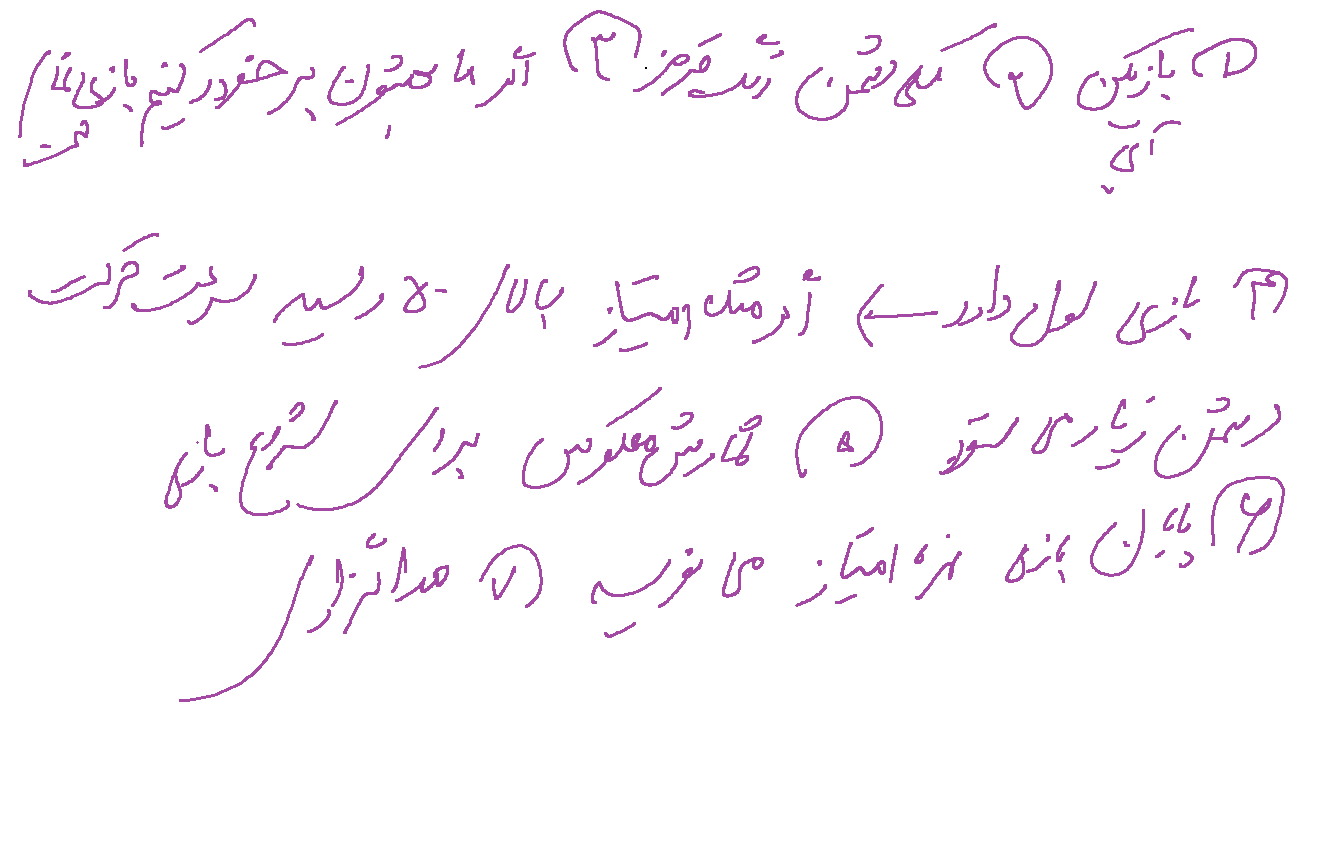 ۱ بازیکن ۲ یکی دشمن رنگ قرمز ۳ اگر ما بهشون برخورد کنیم بازی تمام
آبی است
۴ بازی لول دارد ← اگر مثلا امتیاز بالای ۵۰ رسید سرعت حرکت
دشمن زیاد می شود ۵ شمارش معکوس برای شروع بازی
۶ پایان بازی نمره امتیاز می نویسید ۷ صداگذاری